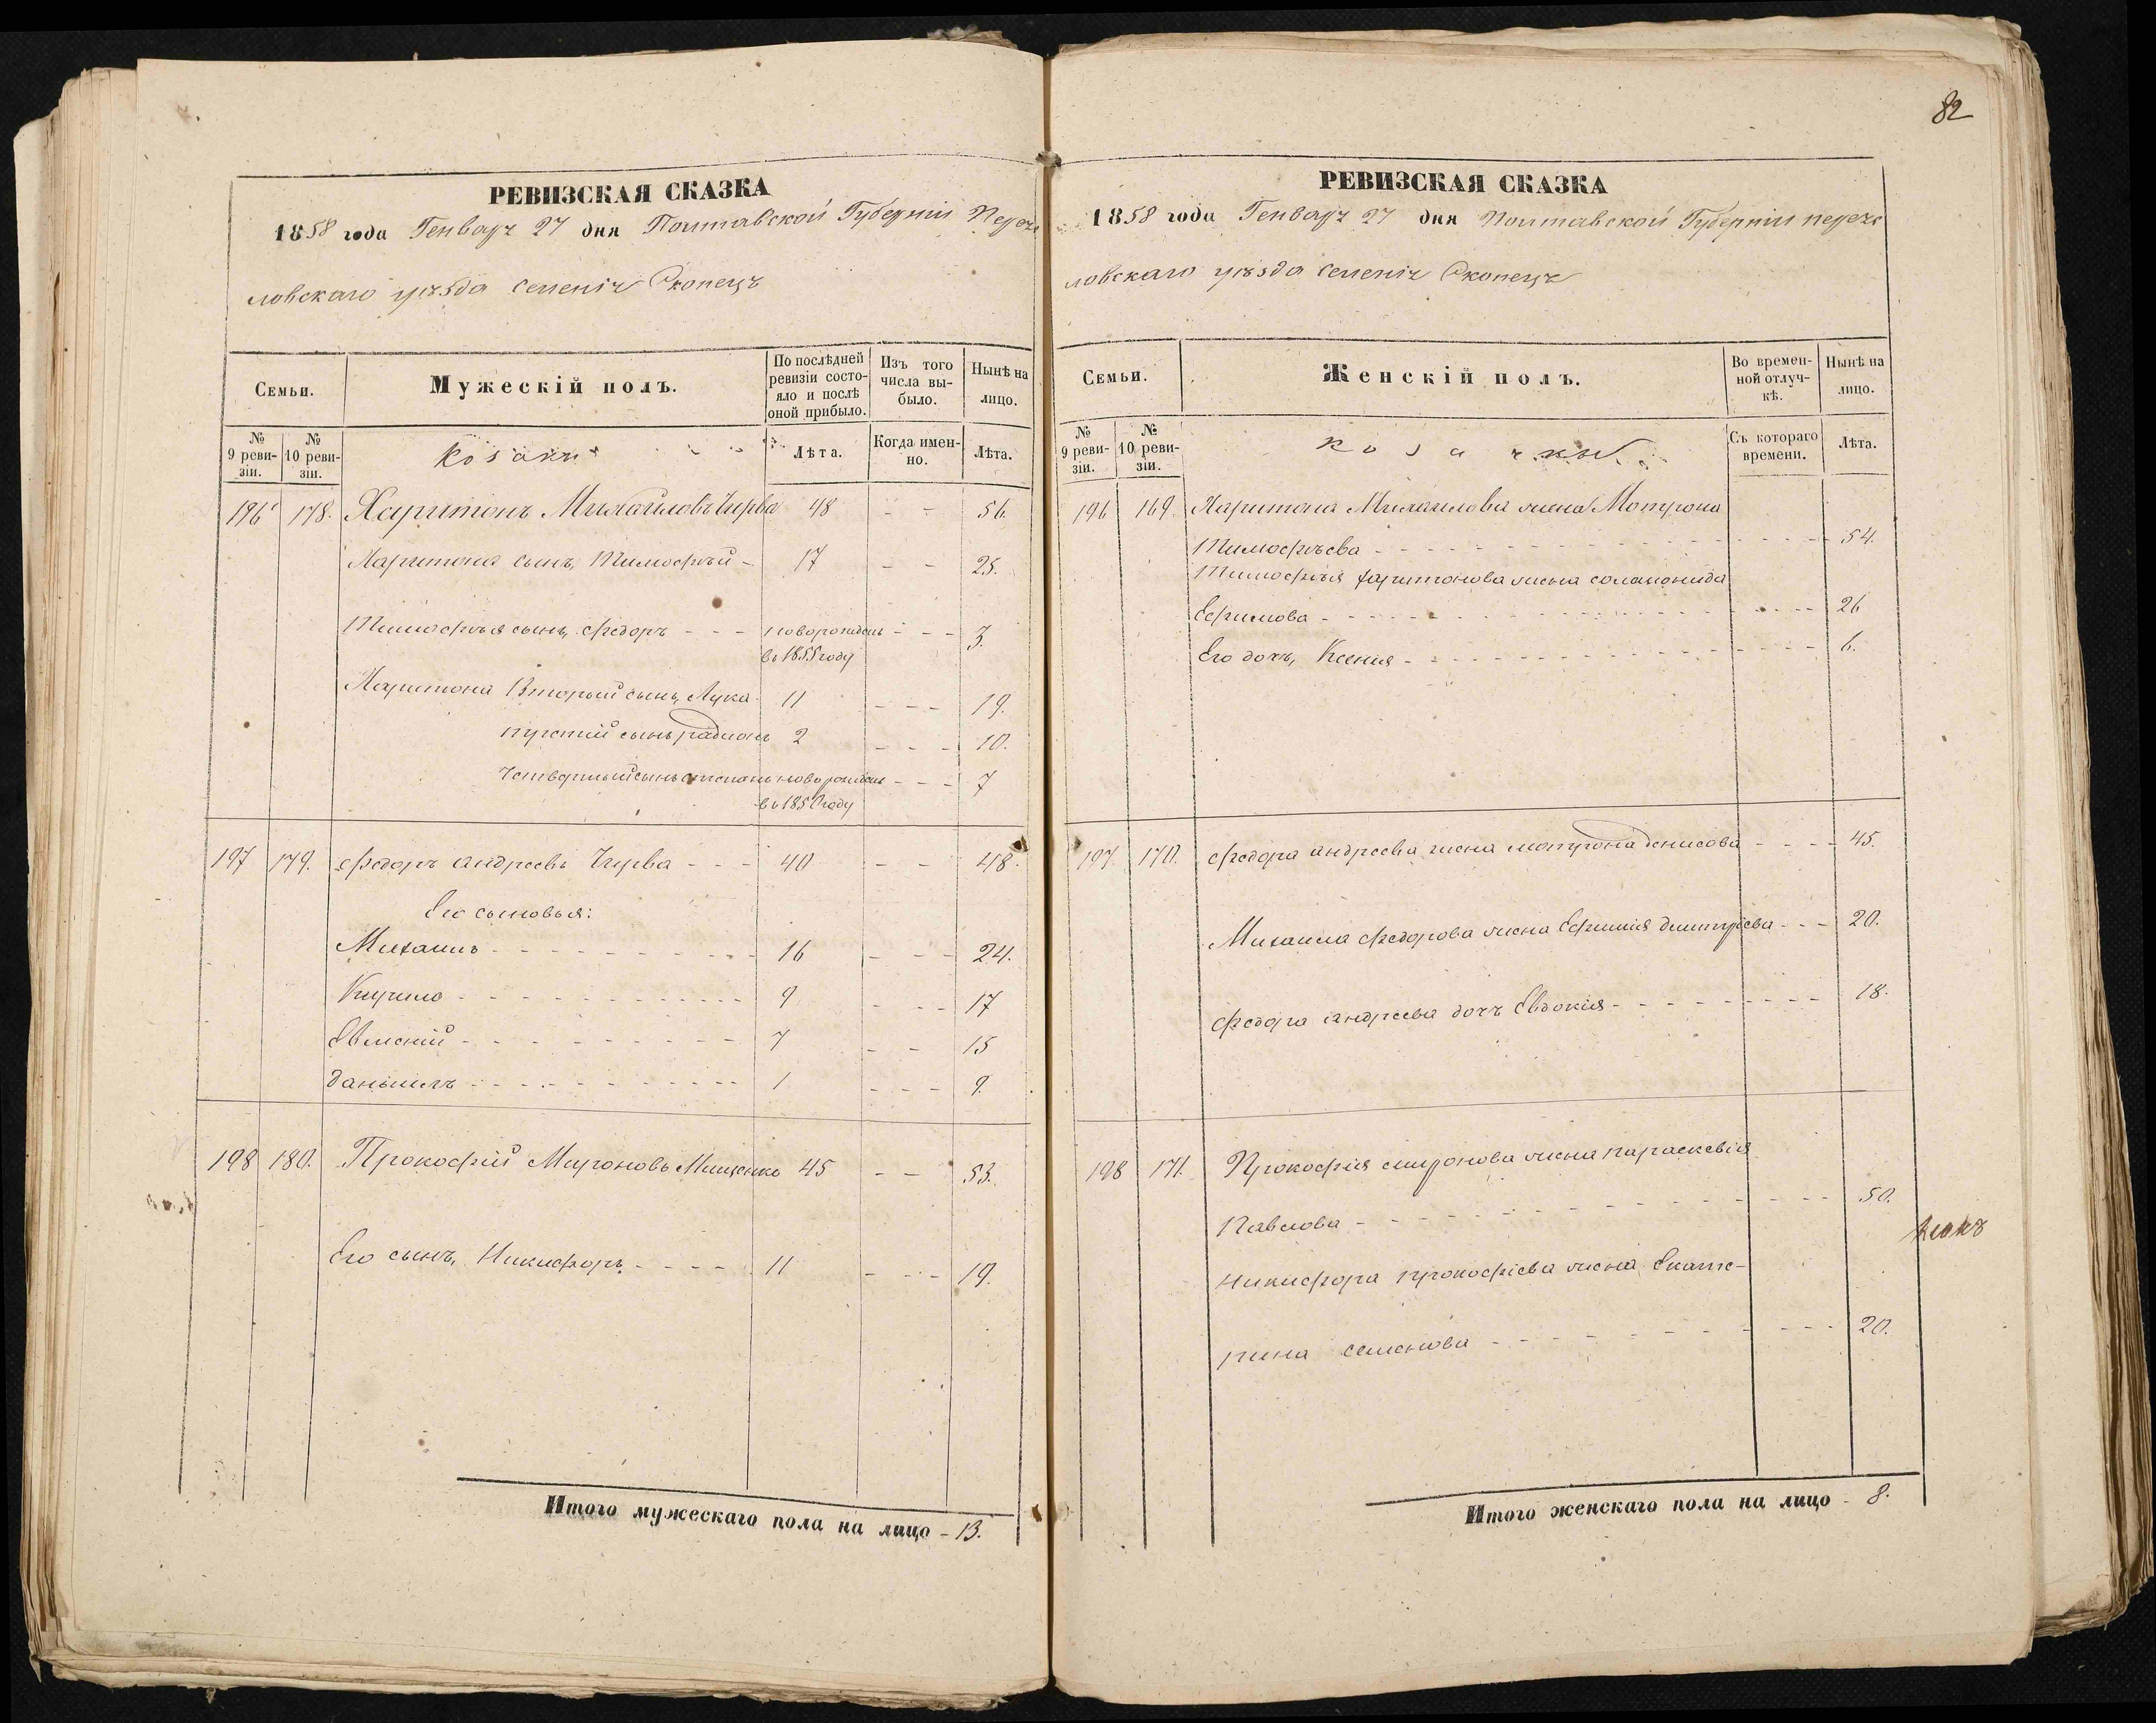 РЕВИЗСКАЯ СКАЗКА
1858 года Генваря 27 дня Полтавской Губерніи Перея
ловскаго уѣзда селенія Скопецъ
Семьи.
Мужескій полъ.
По послѣдней ревизіи состо-
яло и послѣ оной прибыло.
Изъ того числа вы-
было.
Нынѣ на лицо.
№ 9 реви-
зіи.
№ 10 реви-
зіи.
Козаки
Лѣта.
Когда имен-
но.
Лѣта.
196 178. Харитонъ Михайловъ Чирва 48 - - 56.
Харитона сынъ, Тимофѣй - 17 - - 25.
Тимофѣя сынъ, Федоръ - - - новорожденъ - - - 3.
въ 1855 году
Харитона Вторый сынъ, Лука 11 - - - 19.
третій сынъ, радионъ 2 - - - 10.
Четвертый сынъ степанъ новорожденъ - - - 7
въ 1850 году
197 179. Федоръ Андреевъ Чирва - - - 40 - - 48.
Его сыновья:
Михаилъ - - - 16 - - - 24.
Кирило - - - 9 - - - 17
Евмений - - - 7 - - 15
Даніилъ - - - 1 - - - 9.
198 180. Прокофій Мироновъ Мищенко 45 - - 53.
Его сынъ, Никифоръ - - - - 11 - - - 19.
Итого мужескаго пола на лицо - 13.
82
РЕВИЗСКАЯ СКАЗКА
1858 года Генваря 27 дня Полтавской Губерніи перея
ловскаго уѣзда селенія Скопецъ
Семьи.
Женскій полъ.
Во времен-
ной отлуч-
кѣ.
Нынѣ на лицо.
№ 9 реви-
зіи.
№ 10 реви-
зіи.
Козачки
Съ котораго времени.
Лѣта.
196 169. Харитона Михаилова жена Мотрона
Тимофѣева - - - 54.
Тимофѣя Харитонова жена соломонида
Ефимова - - - 26
Его дочь, Ксения - - - 6.
197. 170. Федора андреева жена мотрона денисова - - - 45.
Михаила Федорова жена Ефимия дмитріева - - - 20.
Федора андреева дочь Евдокия - - - 18.
198 171. Прокофия миронова жена параскевія
Павлова - - - 50.
Никифора прокофіева жена, Екате-
рина семенова - - - 20.
Итого женскаго пола на лицо - 8.